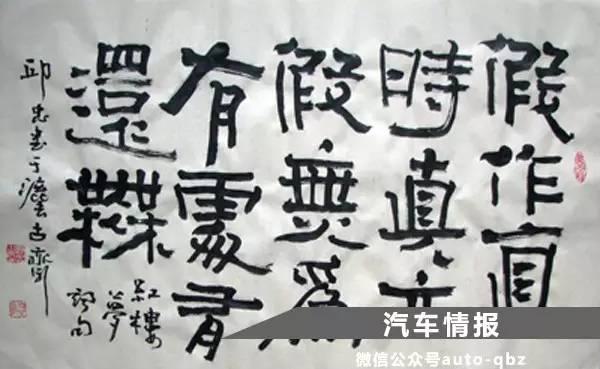 假作真
時真亦
假無為
有處有
還無
紅樓
夢
句
邱忠書于
汽车情报
微信公众号auto-qbz